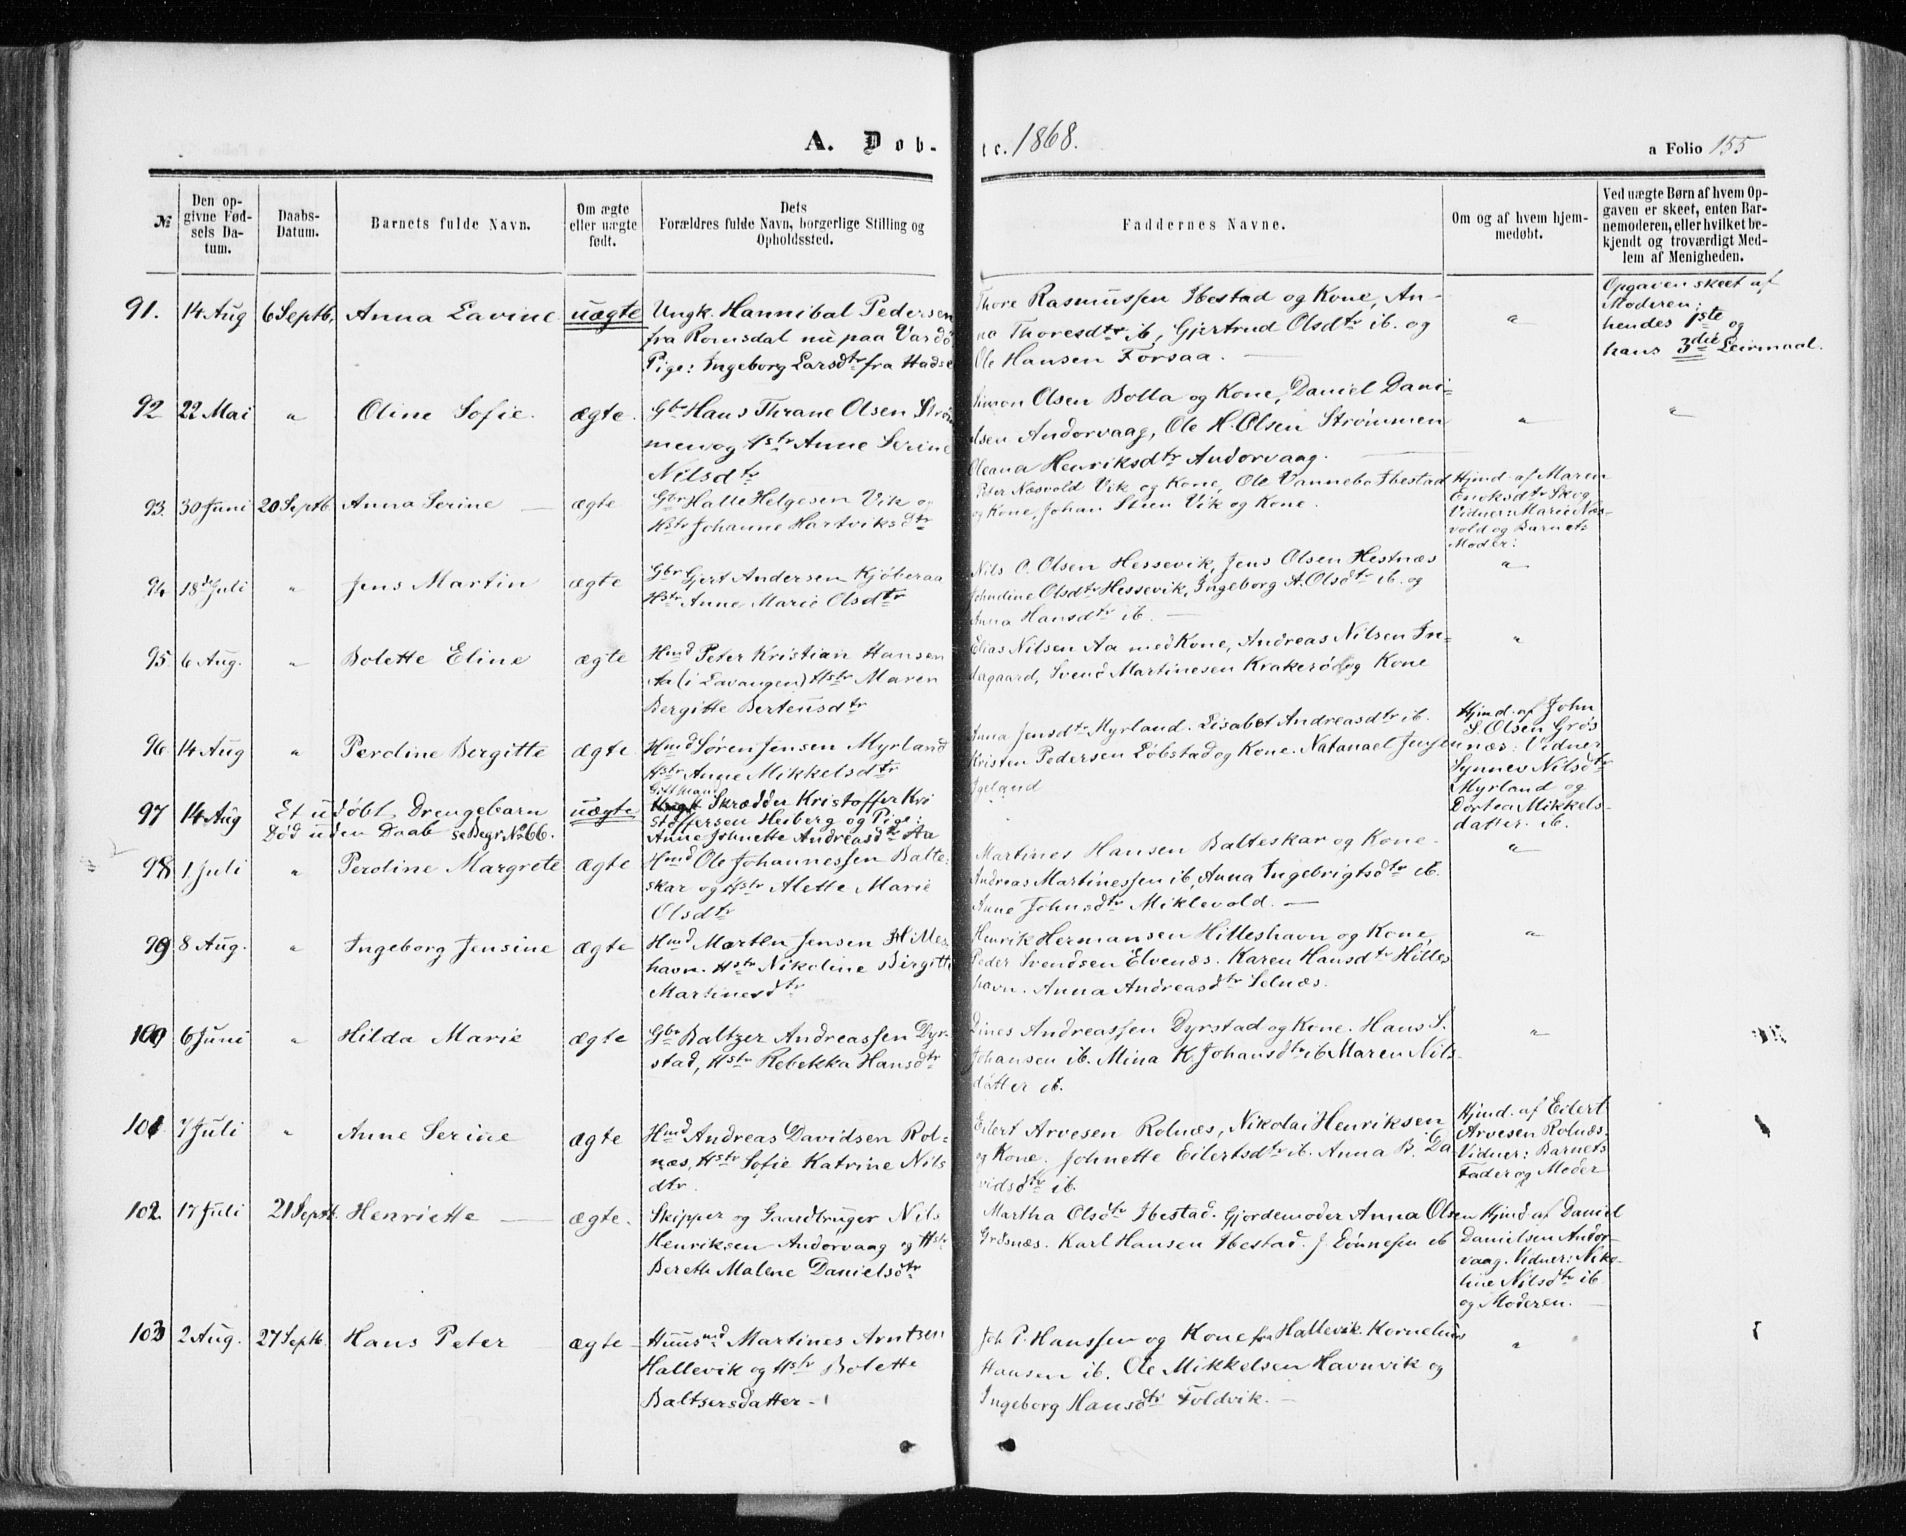 A. Dob-
te. 1868.
a Folio 155
№
Den op-
givne Fød-
sels Da-
tum.
Daabs-
Datum.
Barnets fulde Navn.
Om ægte
eller uægte
født.
Dets
Forældres fulde Navn, borgerlige Stilling og
Opholdssted.
Faddernes Navne.
Om og af hvem hjem-
medøbt.
Ved uægte Børn af hvem Op-
gaven er skeet, enten Bar-
nemoderen, eller hvilket be-
kjendt og troværdigt Med-
lem af Menigheden.
91. 14 Aug 6 Septb. Anna Lavine uægte
Ungk. Hannibal Pedersen
fra Romsdal nu paa Vardø
Pige: Ingeborg Larsdtr fra Hadsel
Thore Rasmussen Ibestad og Kone, An-
na Thoresdtr ib, Gjertrud Olsdtr ib. og
Ole Hansen Forsaa. —
"
Opgaven skeet af
Moderen:
hendes 1ste og
hans 3die Leirmaal.
92 22 Mai " Oline Sofie. ægte.
Gbr Hans Thrane Olsen Strøm
men og Hstr Anne Serine
Nilsdtr
Simon Olsen Bolla og Kone, Daniel Dani-
elsen Andorvaag, Ole H. Olsen Strømmen
Oleana Henriksdtr Andorvaag. —
"
"
93. 30 Juni 20 Septb Anna Serine — ægte
Gbr Halle Helgesen Vik og
Hstr Johanne Hartviksdtr
Peter Næsvold Vik og Kone, Ole Vannebo Ibestad
og Kone, Johan Steen Vik og Kone.
Hjmd af Maren
Enoksdtr Skog
Vidner: Marie Næs-
vold og Barnets
Moder:
94 18de Juli " Jens Martin ægte
Gbr Gjert Andersen Kjøberaa
Hstr Anne Marie Olsdtr
Nils O. Olsen Hessevik, Jens Olsen Hestnæs
Johndine Olsdtr Hessevik, Ingeborg A. Olsdtr ib. og
Anna Hansdtr ib. —
"
95 6 Aug. " Bolette Eline ægte
Hmd Peter Kristian Hansen
Aa (i Lavangen) Hstr Maren
Bergitte Berteusdtr
Elias Nilsen Aa med Kone, Andreas Nilsen In-
dagaard, Svend Martinesen Krakerød og Kone
"
96 14 Aug " Perdine Bergitte ægte
Hmd Søren Jensen Myrland
Hstr Anne Mikkelsdtr
Anna Jensdtr Myrland. Lisabet Andreasdtr ib.
Kristen Pedersen Løbstad og Kone. Natanael Jensen
Igeland
Hjmd. af John
S. Olsen Grøs
næs: Vidner
Synnev Nilsdtr
Myrland og
Dortea Mikkels-
datter. ib.
97 14 Aug Et udøbt Drengebarn uægte
Død uden Daab se Begr. No 66.
Gift Mand
Skrædder Kristoffer Kri
stoffersen Heiberg og Pige:
Anne Johnette Andreasdtr Aa
98 1 Juli " Peroline Margrete ægte
Hmd Ole Johannessen Balte-
skar og Hstr Alette Marie
Olsdtr
Martines Hansen Balteskar og Kone.
Andreas Martinessen ib, Anna Ingebrigtsdtr ib.
Anne Johnsdtr Miklevold. —
"
99 8 Aug. " Ingeborg Jensine ægte
Hmd Marten Jensen Hilles
havn. Hstr Nikoline Birgitte
Martinesdtr
Henrik Hermansen Hilleshavn og Kone,
Peder Svendsen Elvenæs. Karen Hansdtr Hilles
havn. Anna Andreasdtr Selnæs.
"
100 6 Juni " Hilda Marie ægte
Gbr Baltzer Andreassen Dyr-
stad, Hstr Rebekka Hansdtr
Dines Andreassen Dyrstad og Kone. Hans S.
Johansen ib. Mina K. Johansdtr ib Maren Nils-
datter ib.
"
101 7 Juli " Anne Serine ægte
Hmd Andreas Davidsen Rol-
næs, Hstr Sofie Katrine Nils
dtr.
Eilert Arvesen Rolnæs, Nikolai Henriksen
og Kone. Johnette Eilertsdtr ib. Anna B. Da
vidsdtr ib.
Hjmd. af Eilert
Arvesen Rolnæs.
Vidner: Barnets
Fader og Moder
102. 17 Juli 21 Septb. Henriette — ægte.
Skipper og Gaardbruger Nils
Henriksen Andorvaag og Hstr
Berethe Malene Danielsdtr
Martha Olsdtr Ibestad. Gjordemoder Anna Olsen
Grøsnæs. Karl Hansen Ibestad. J. Lønnesen ib
Hjmd af Daniel
Danielsen Andor-
vaag. Vidner: Niko-
line Nilsdtr ib.
og Moderen. —
103 2 Aug. 27 Septb. Hans Peter ægte
Huusmd Martines Arntsen
Hallevik og Hstr Bolette
Baltsersdatter —
Joh P. Hanssen og Kone fra Hallevik. Kornelius
Hansen ib. Ole Mikkelsen Havnvik og
Ingeborg Hansdtr Foldvik. —
"